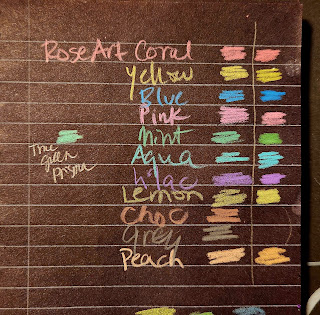 RoseArt Coral
Yellow
Blue
Pink
Mint
True
green
prisma
Aqua
Lilac
Lemon
Choc
Grey
Peach